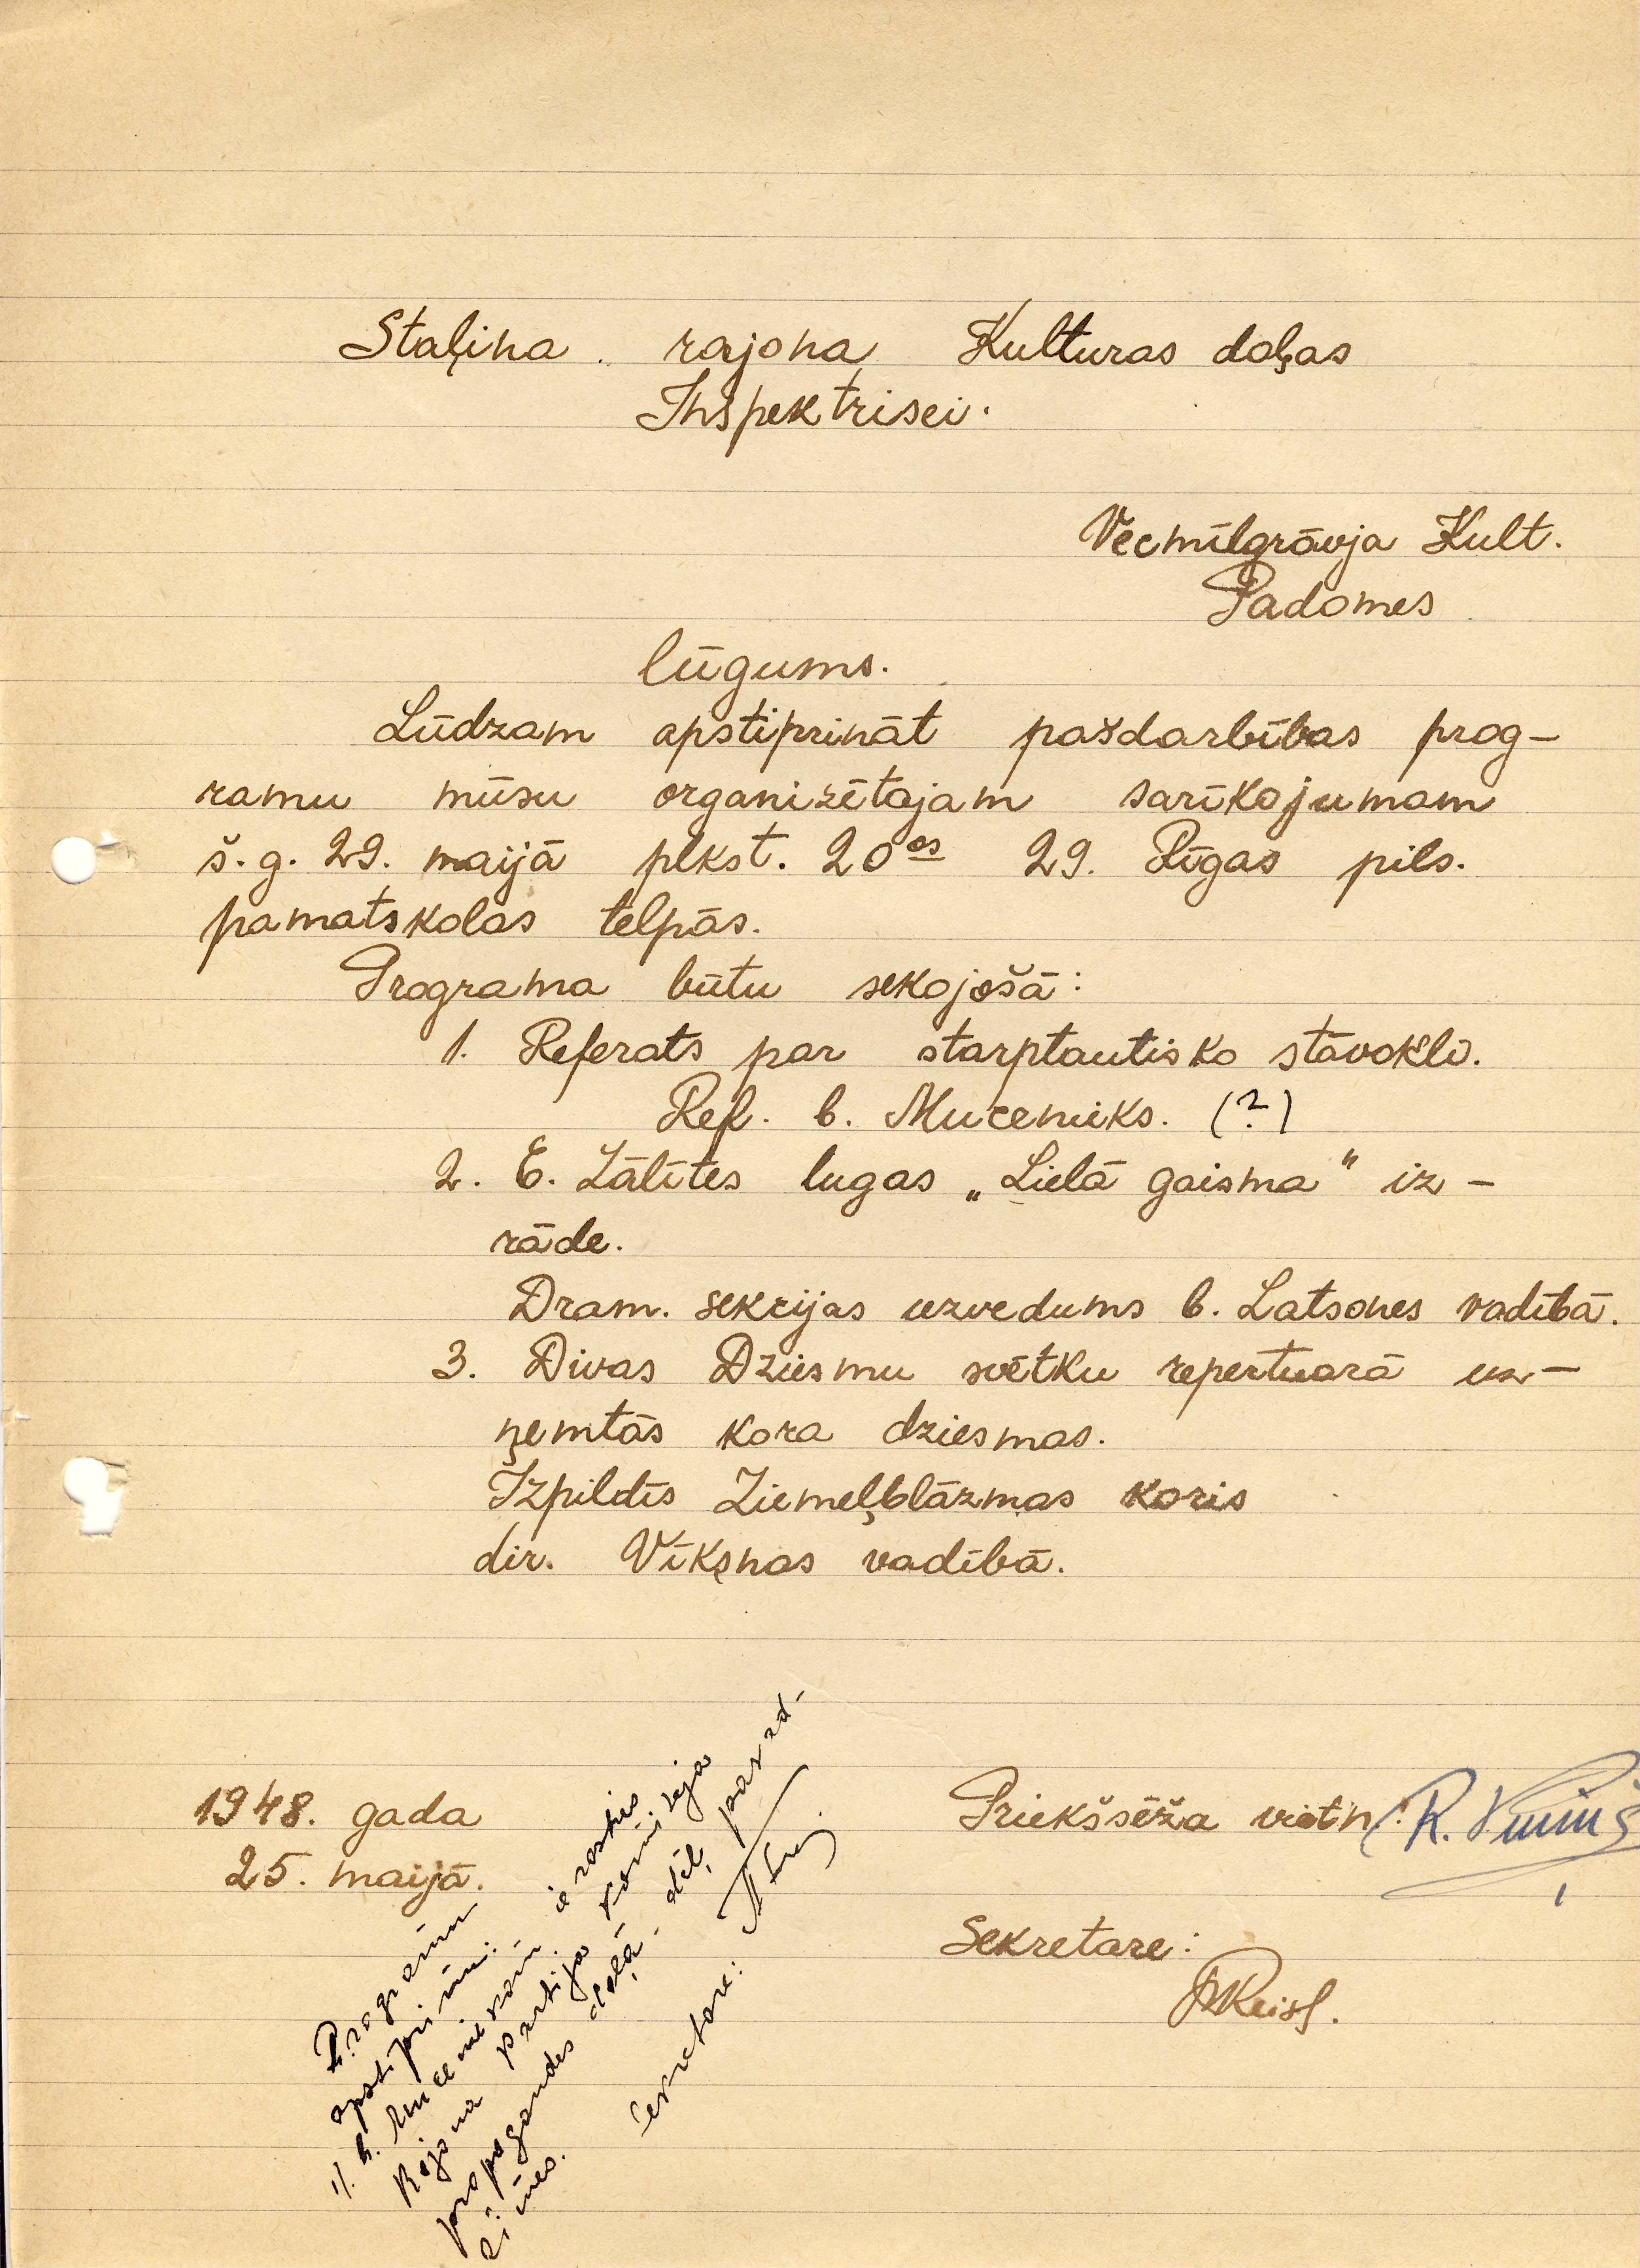 Staļina rajona Kulturas daļas
Inspektrisei.
Vecmīlgrāvja Kult.
Padomes
lūgums.
Lūdzam apstiprināt pašdarbības prog-
ramu mūsu organizētajam sarīkojumam
š.g. 29. maijā plkst. 20os 29. Rīgas pils.
pamatskolas telpās.
Programa būtu sekojošā:
1. Referats par starptautisko stāvokli.
Ref. b. Mucenieks. (?)
2. E. Zālītes lugas „Lielā gaisma" iz-
rāde.
Dram. sekcijas uzvedums b. Latsones vadībā.
3. Divas Dziesmu svētku repertuarā uz-
ņemtās kora dziesmas.
Izpildīs Ziemeļblāzmas koris
dir. Vīksnas vadībā.
1948. gada
25. maijā.
Priekšsēža vietn.: R.
Sekretare:
Programu
apstiprinu.
b. Muceniekam ierasties
Rajona partijas komitejas
propogandes daļā - dēļ pārzd-
zīmes.